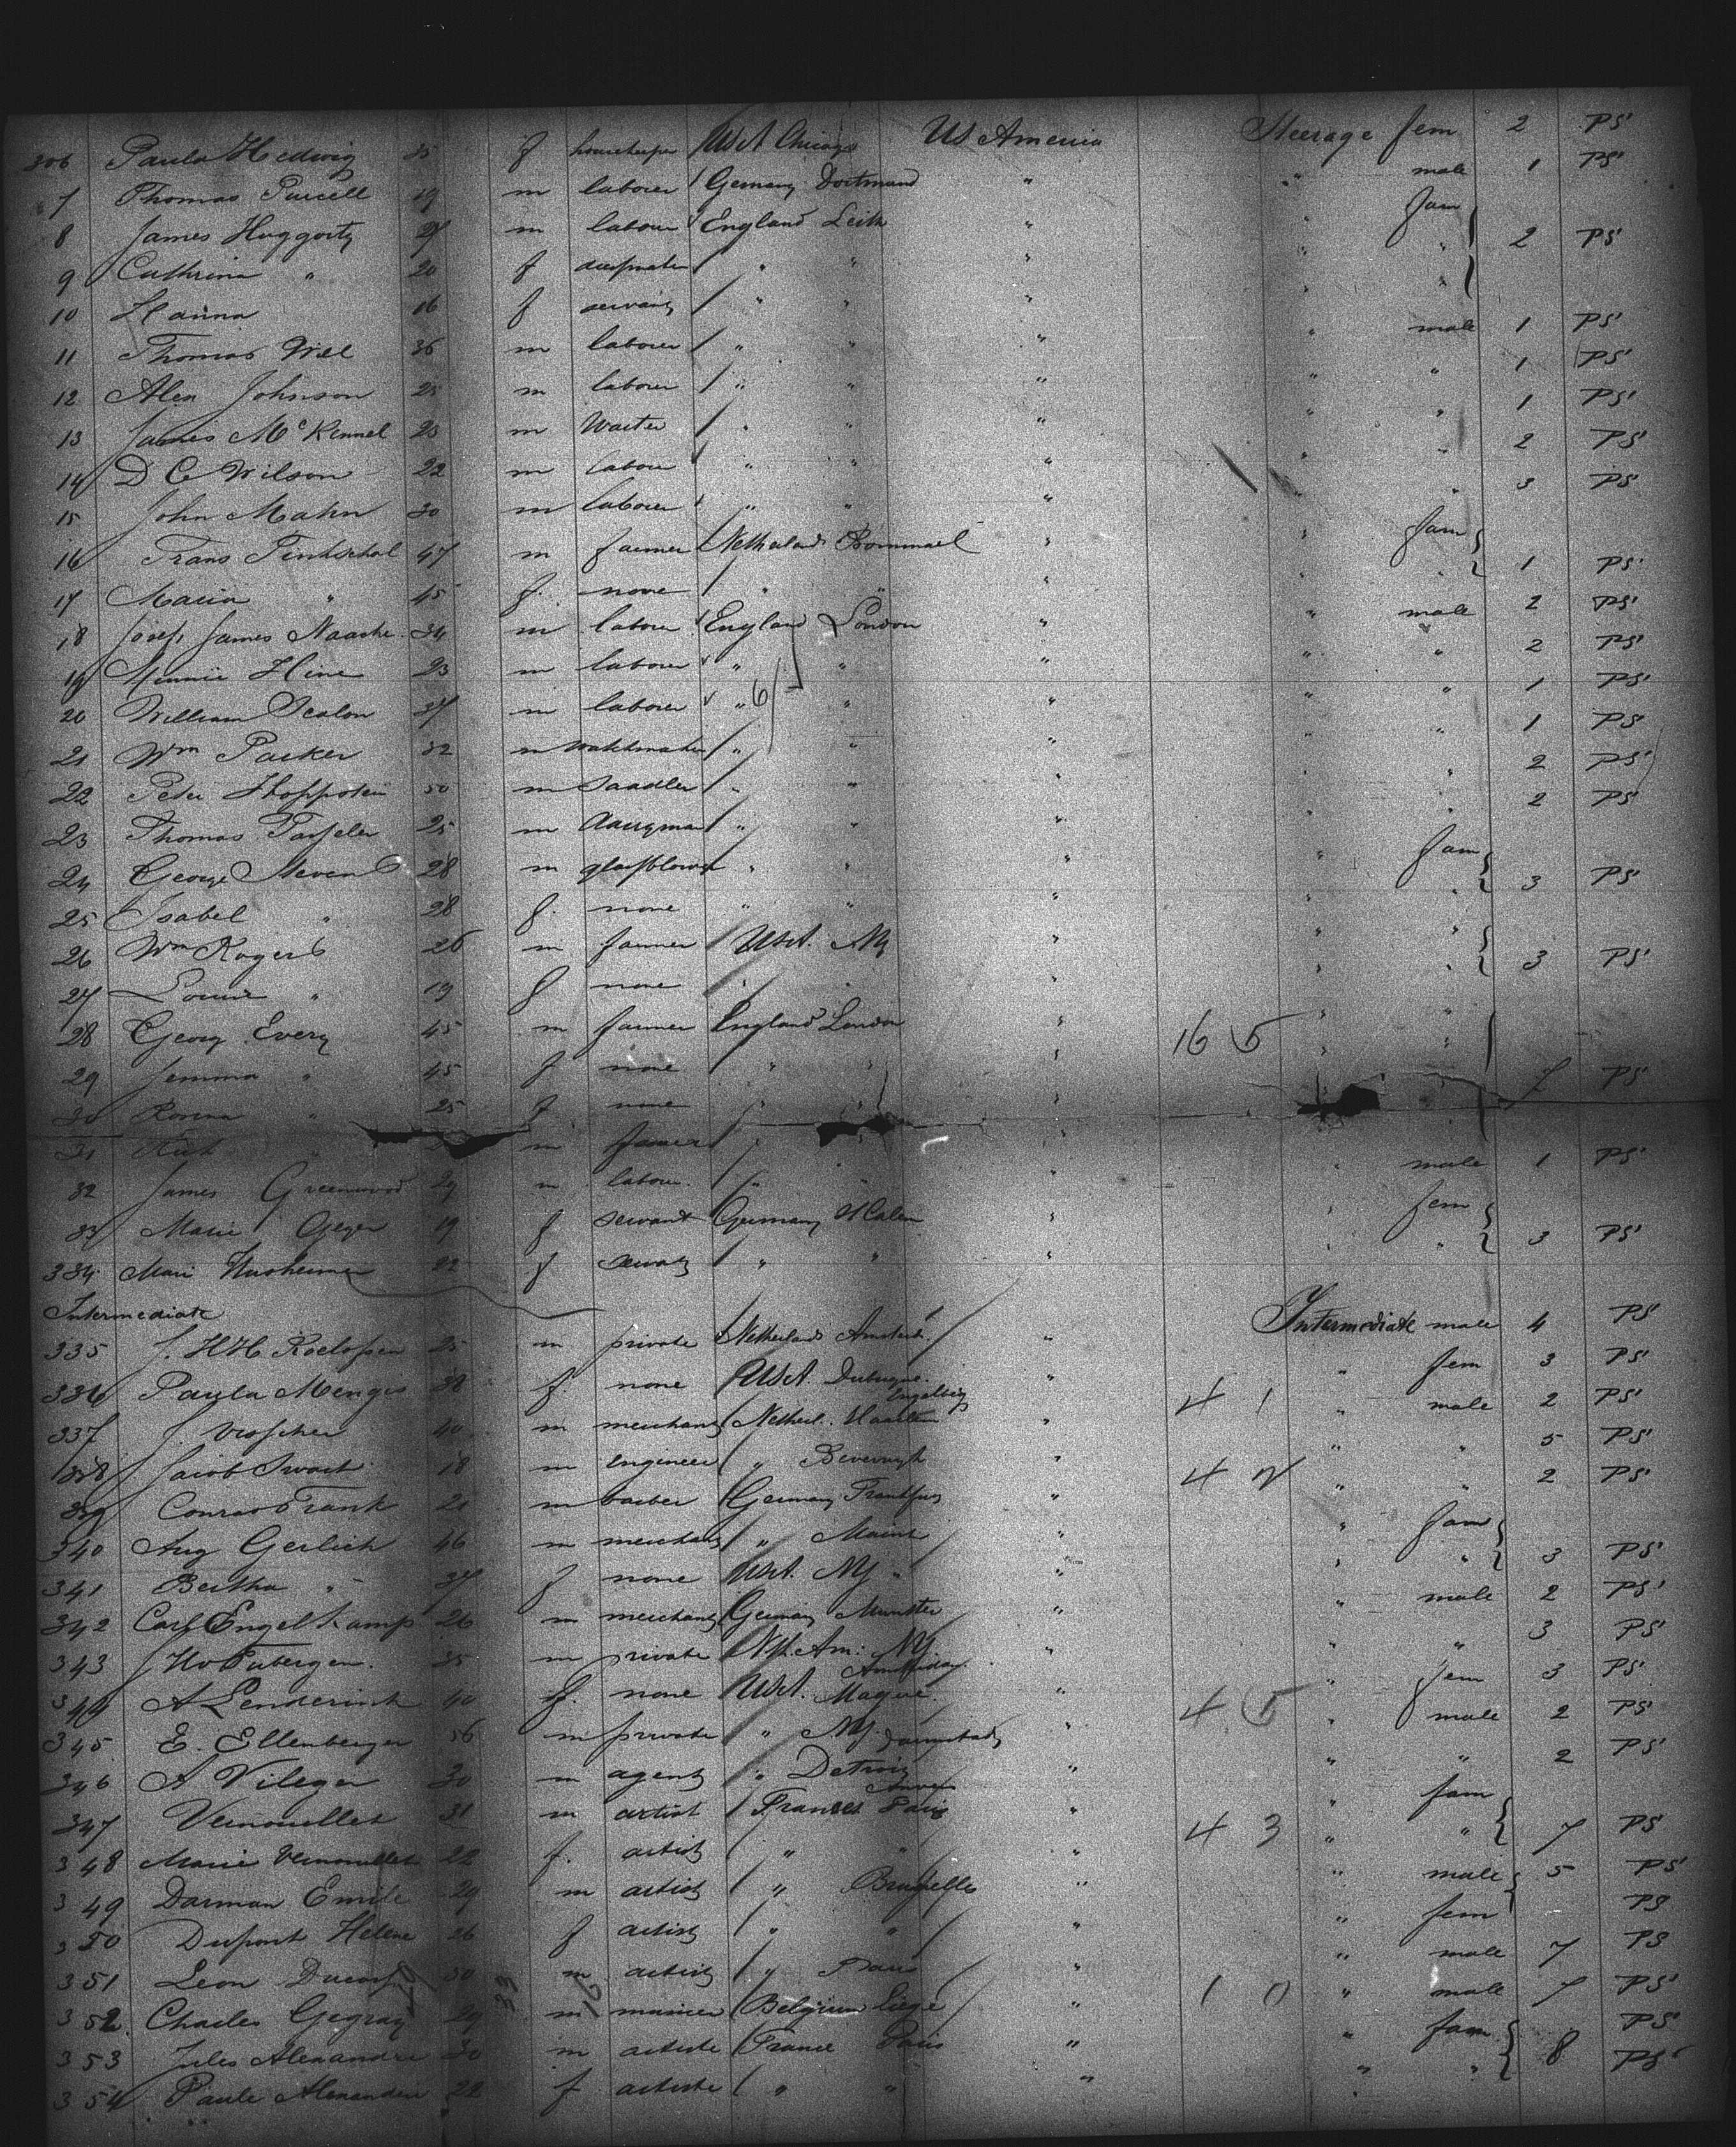 306 Paula Hedwig 35 f housekeeper USA Chicago US America Steerage fem 2 PS
7 Thomas Purcell 19 m laborer Germany Dortmund " " male 1 PS
8 James Haggorty 27 m labour England Leith " " fam
9 Cathrina " 20 f " " " " " 2 PS
10 Hanna 16 f servant " " " " "
11 Thomas 36 m laborer " " " " male 1 PS
12 Alex Johnson 25 m laborer " " " " " 1 PS
13 James McKennel 23 m Waiter " " " " " 1 PS
14 D C Wilson 22 m labour " " " " " 2 PS
15 John Mahn 30 m laborer " " " " " 3 PS
16 Frans 47 m farmer Netherlands Bommael " " fam
17 Maria " 45 f. none " " " " " 1 PS
18 Josef James Naache 34 m laborer England London " " male 2 PS
19 Minnie Hine 23 m laborer " " " " " 2 PS
20 William Scalon 37 m laborer " 6 " " " " 1 PS
21 Wm Parker 32 m watchmaker " " " " " 1 PS
22 Peter 50 m Saadler " " " " " 2 PS
23 Thomas 25 m " " " " " 2 PS
24 George Stevens 28 m glassblower " " " " fam
25 Isabel " 28 f. none " " " " " 3 PS
26 Wm Rogers 26 m farmer USA. NY " " "
27 Louise " 19 f none " " " " " 3 PS
28 Georg Every 45 m farmer England London " 16 5 " "
29 Jemma " 45 f none " " " " "
30 Rosina " 25 f none " " 7 PS
31 m farmer " "
32 James Greenwood 29 m labour. " " " " male 1 PS
33 Marie Geyer 19 f servant Germany " " fem
334 Mari 22 f " " " " " 3 PS
Intermediate
335 J. HH Roelofsen 25 m private Netherlands Amsterd. " Intermediate male 4 PS
336 Paula Menges 38 f. none USA. Dubuque. " " fem 3 PS
337 J. Visscher 40 m merchant Netherl. Haarlem " 4 1 " male 2 PS
338 Jacob Swart 18 m engineer " " " " 5 PS
339 Conrad Frank 21 m barber Germany Frankfurt " 4 " " 2 PS
340 Aug Gerlich 46 m merchant " Mainz " " fam
341 Bertha " 37 f none USA. NY " " " " 3 PS
342 Carl Engelkamp 26 m merchant Germany Munster " " male 2 PS
343 35 m private Nth. Am: NY " " " 3 PS
344 A Lenderink 40 f. none USA. " " fem 3 PS
345 E. Ellenberger 56 m private " NY. " 4 5 " male 2 PS
346 A Vileger 30 m agent " Detroit " " " 2 PS
347 Vernouillet 31 m artist France Paris " " fam
348 Marie Vernouillet 22 f. artist " " " 4 3 " " 7 PS
349 Darman Emile 29 m artist " Bruxelles " " male 5 PS
350 Dupont Helene 26 f artist " " " " fem PS
351 Leon 30 m artist " Paris " " male 7 PS
352 Charles 29 m Belgium Liege " 1 0 " male 7 PS
353 Jules Alexandre 30 m artiste France Paris " " fam PS
354 Paule Alexandre 22 f artiste " " " " " 8 PS